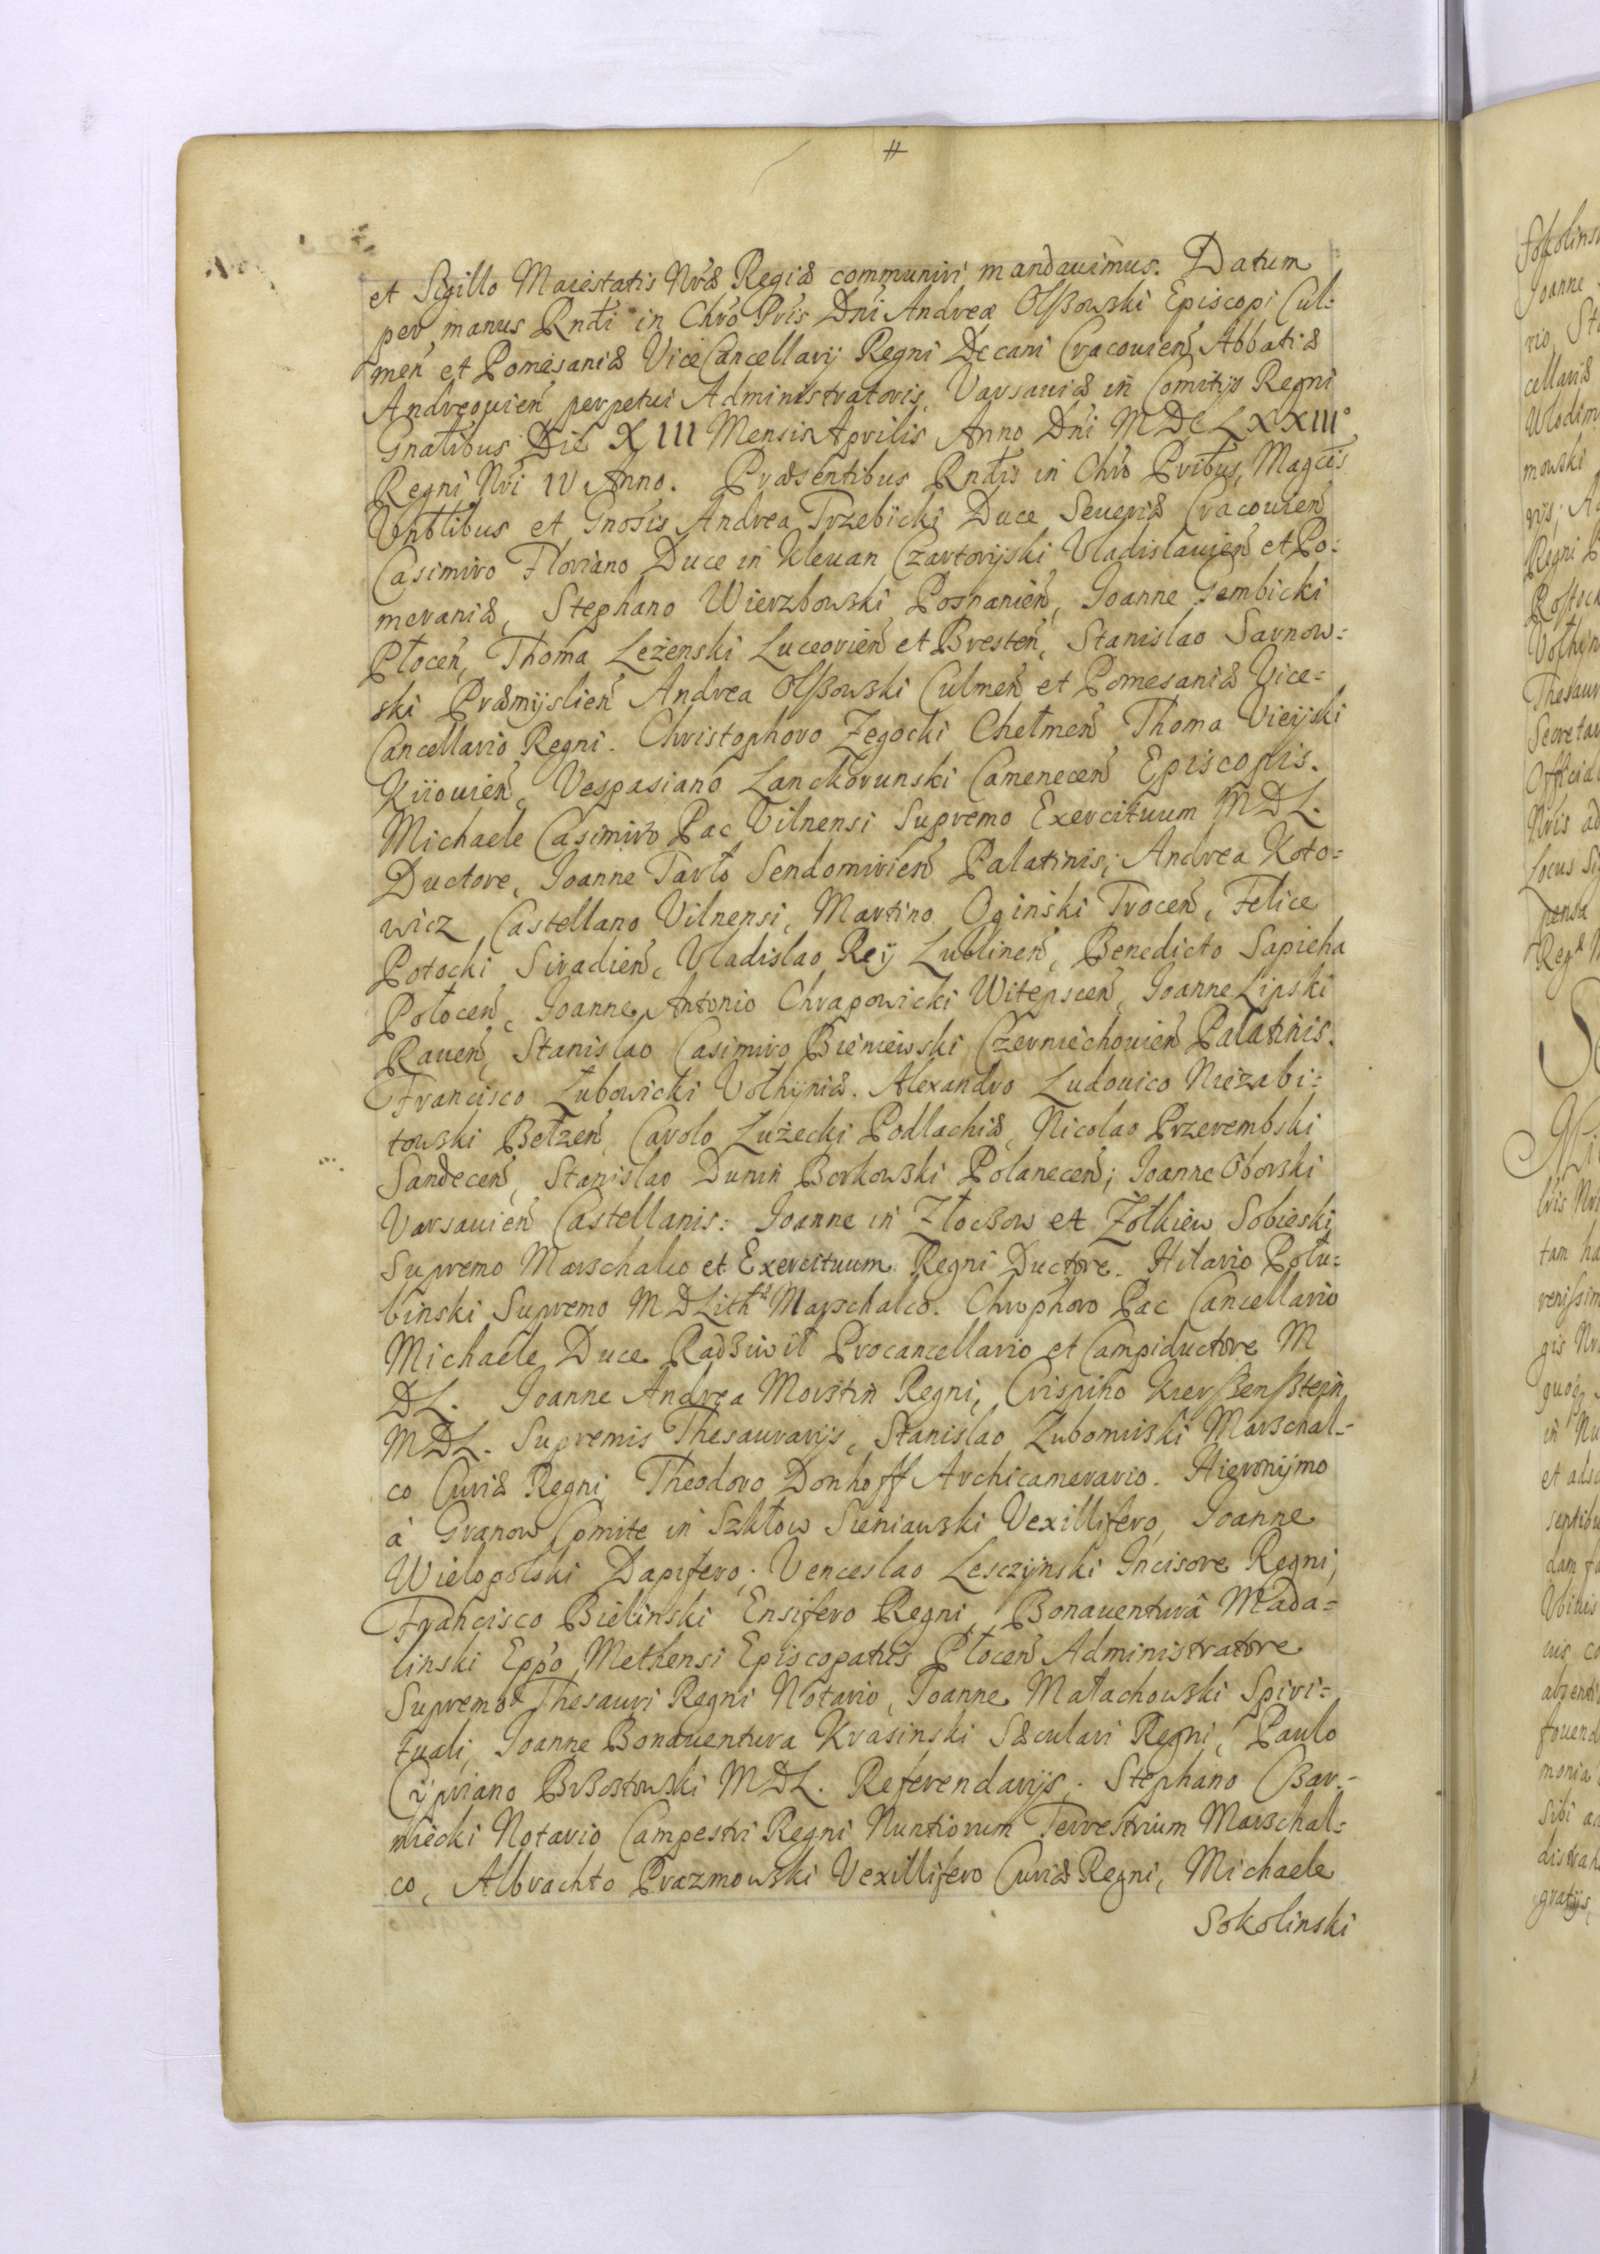 et Sigillo Maiestatis Nrae Regiae communiri mandauimus. Datum
per manus Rndi in Chro Pris Dni Andreae Olßowski Episcopi Cul:
men et Pomesaniae ViceCancellarij Regni Decani Cracouien Abbatiae
Andreouien perpetui Administratoris, Varsauiae in Comitijs Regni
Gnalibus Die XIII Mensis Aprilis Anno Dni MDCLXXIII°
Regni Nri IV Anno. Praesentibus Rndis in Chro Pribus, Magcis
Vnblibus et Gnosis Andrea Trzebicki Duce Seueriae Cracouien
Casimiro Floriano Duce in Kleuan Czartoryski Vladislauien et Po:
meraniae, Stephano Wierzbowski Posnanien, Joanne Gembicki
Płocen, Thoma Leżenski Luceorien et Bresten, Stanislao Sarnow:
ski Praemyslien Andrea Olßowski Culmen et Pomesaniae Vice:
Cancellario Regni. Christophoro Zegocki Chełmen Thoma Vieijski
Kiiouien, Vespasiano Lanckorunski Camenecen Episcopis.
Michaele Casimiro Pac Vilnensi Supremo Exercituum MDL.
Ductore, Joanne Tarło Sendomirien Palatinis; Andrea Koto:
wicz Castellano Vilnensi, Martino Oginski Trocen, Felice
Potocki Siradien, Vladislao Reij Lublinen, Benedicto Sapieha
Połocen, Joanne Antonio Chrapowicki Witepscen, Joanne Lipski
Rauen, Stanislao Casimiro Bieniewski Czerniechouien Palatinis.
Francisco Łubowicki Vołhyniae. Alexandro Ludouico Niezabi:
towski Bełzen, Carolo Lużecki Podlachiae, Nicolao Przerembski
Sandecen, Stanislao Dunin Borkowski Polanecen; Joanne Oborski
Varsauien Castellanis: Joanne in Złoczow et Zołkiew Sobieski
Supremo Marschalco et Exercituum Regni Ductore. Hilario Połu:
binski Supremo MDLithae Marschalco. Chrophoro Pac Cancellario
Michaele Duce Radziwił Procancellario et Campiductore M
DL. Joanne Andrea Morstin Regni, Crispino Kierßenßtein
MDL. Supremis Thesaurarijs, Stanislao Lubomirski Marschal-
co Curiae Regni Theodoro Donhoff Archicamerario. Hieronijmo
à Granow Comite in Szkłow Sieniawski Vexillifero, Joanne
Wielopolski Dapifero; Venceslao Lesczijnski Incisore Regni;
Francisco Bielinski Ensifero Regni, Bonauentura Mada=
linski Eppo Methensi Episcopatus Płocen Administratore
Supremo Thesauri Regni Notario, Joanne Małachowski Spiri=
tuali, Joanne Bonauentura Krasinski Saeculari Regni, Paulo
Cijpriano Brzostowski MDL. Referendarijs. Stephano Czar-
niecki Notario Campestri Regni Nuntiorum Terrestrium Marschal=
co, Albrachto Prazmowski Vexillifero Curiae Regni, Michaele
Sokolinski